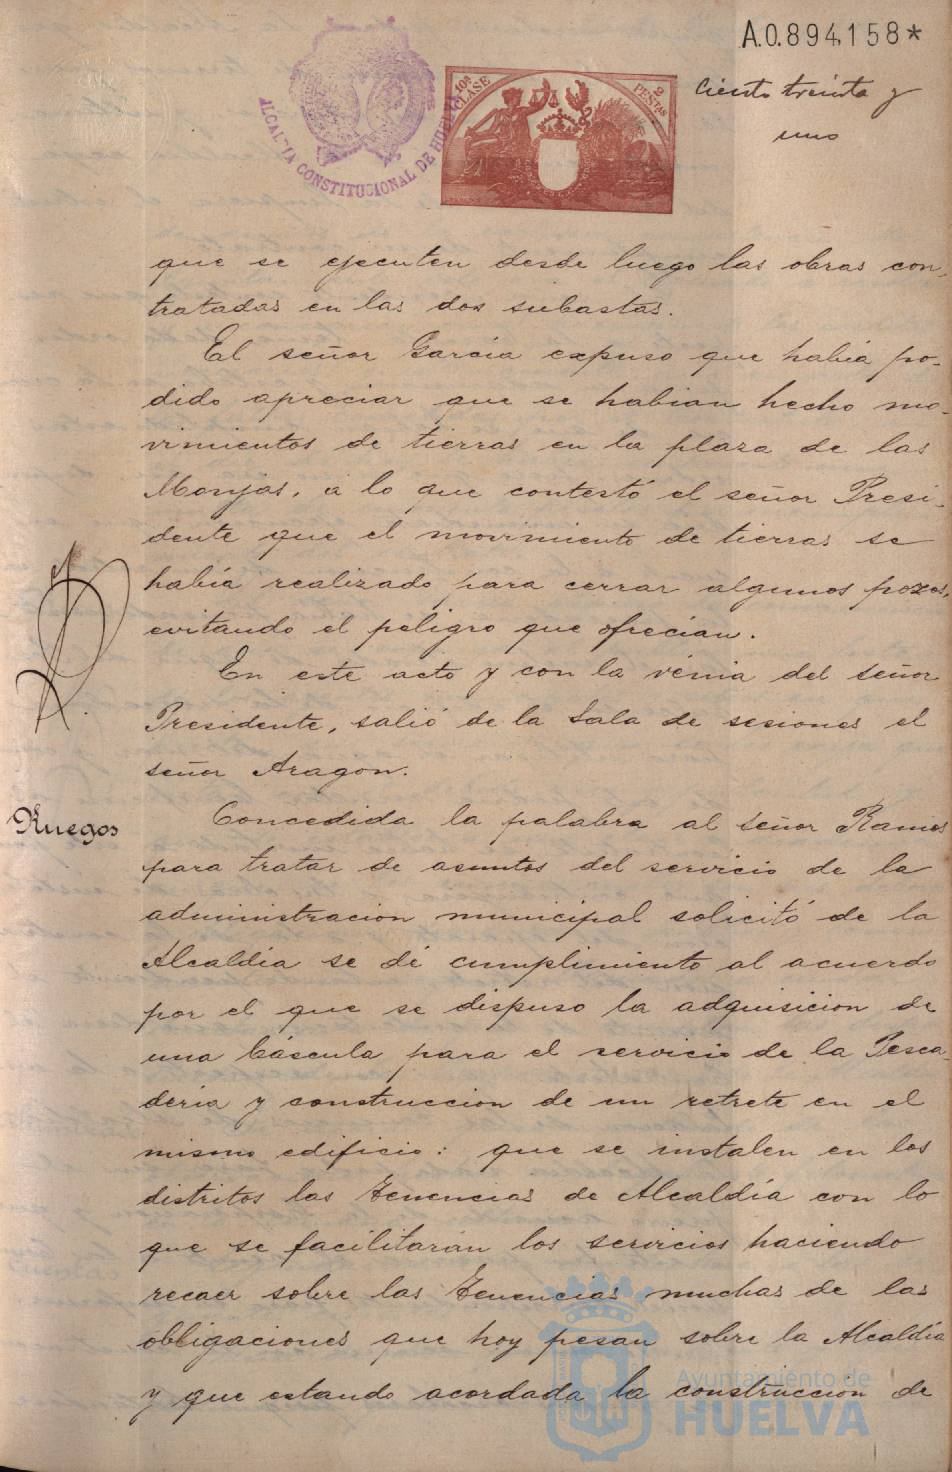 A.0.894,158*
ALCALDIA CONSTITUCIONAL DE HUELVA
10ª CLASE
2 PESETAS
Ciento treinta y
uno
que se ejecuten desde luego las obras con-
tratadas en las dos subastas.
El señor García expuso que había po-
dido apreciar que se habian hecho mo-
vimientos de tierras en la plaza de las
Monjas, á lo que contestó el señor Presi-
dente que el movimiento de tierras se
había realizado para cerrar algunos pozos,
evitando el peligro que ofrecían.
En este acto y con la vénia del señor
Presidente, salió de la Sala de sesiones el
señor Aragon.
Ruegos
Concedida la palabra al señor Ramos
para tratar de asuntos del servicio de la
administracion municipal solicitó de la
Alcaldía se dé cumplimiento al acuerdo
por el que se dispuso la adquisicion de
una báscula para el servicio de la Pesca-
dería y construccion de un retrete en el
mismo edificio: que se instalen en los
distritos las Tenencias de Alcaldía con lo
que se facilitarán los servicios haciendo
recaer sobre las Tenencias muchas de las
obligaciones que hoy pesan sobre la Alcaldía
y que estando acordada la construccion de
Ayuntamiento de
HUELVA